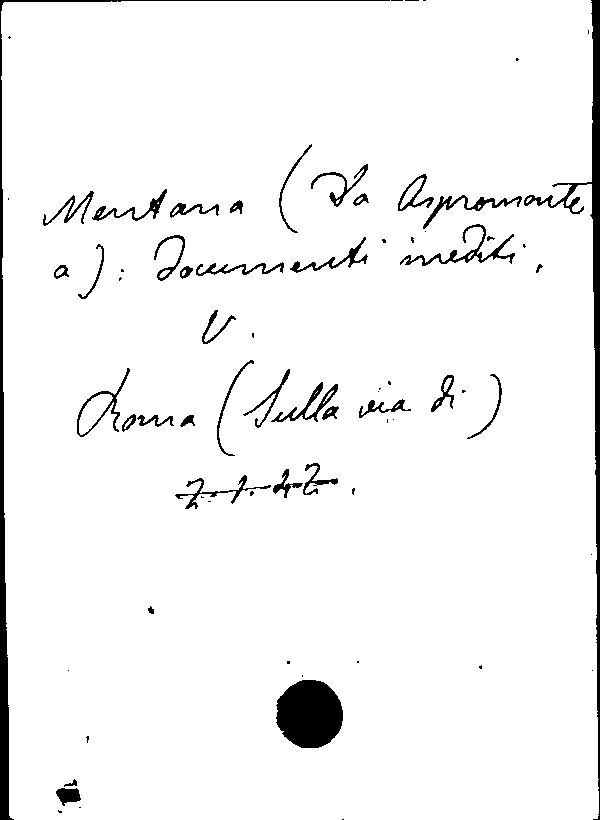 Mentana (Da Aspromonte
a): documenti inediti.
V.
Roma (Sulla via di)
2.1.42.